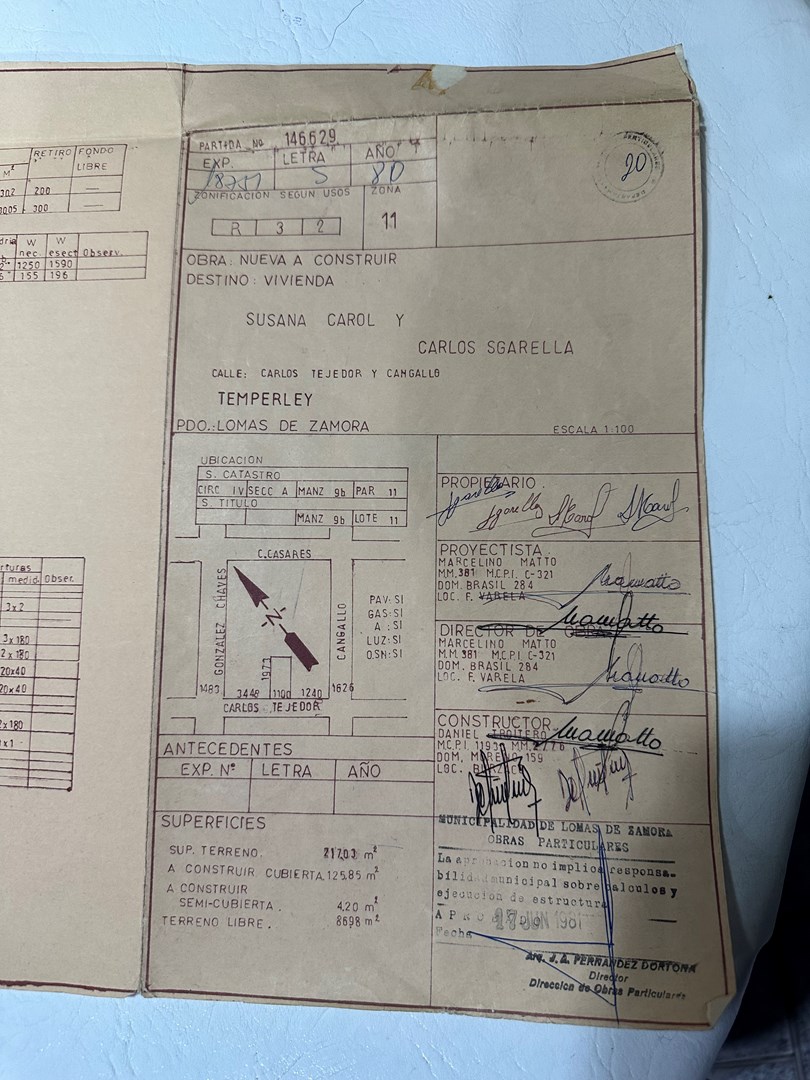 RETIRO FONDO
M² LIBRE
302 200 —
300 —
W W
nec. esect Observ.
1250 1590
155 196
PARTIDA Nº 146629
EXP. LETRA AÑO
18751 S 80
ZONIFICACIÓN SEGUN USOS ZONA
R 3 2 11
20
OBRA: NUEVA A CONSTRUIR
DESTINO: VIVIENDA
SUSANA CAROL Y
CARLOS SGARELLA
CALLE: CARLOS TEJEDOR Y CANGALLO
TEMPERLEY
PDO.: LOMAS DE ZAMORA ESCALA 1:100
UBICACION
S. CATASTRO
CIRC IV SECC A MANZ 9b PAR 11
S. TITULO
MANZ 9b LOTE 11
C.CASARES
GONZALEZ CHAVES
CANGALLO
N
PAV: SI
GAS: SI
A : SI
LUZ: SI
O.SN: SI
1973
1483 3448 1100 1240 1626
CARLOS TEJEDOR
medid. Obser.
3 x 2
3 x 180
2 x 180
20x40
20x40
2 x 180
ANTECEDENTES
EXP. Nº LETRA AÑO
SUPERFICIES
SUP. TERRENO. 217,03 m²
A CONSTRUIR CUBIERTA. 125,85 m²
A CONSTRUIR
SEMI-CUBIERTA. 4,20 m²
TERRENO LIBRE. 86,98 m²
PROPIETARIO.
PROYECTISTA.
MARCELINO MATTO
MM. 381 M.C.P.I. C-321
DOM. BRASIL 284
LOC. F. VARELA
DIRECTOR DE OBRA
MARCELINO MATTO
M.M. 381 M.C.P.I. C-321
DOM. BRASIL 284
LOC. F. VARELA
CONSTRUCTOR
DANIEL
M.C.P.I. 1193 M.M. 2776
DOM. MORENO 159
LOC.
MUNICIPALIDAD DE LOMAS DE ZAMORA
OBRAS PARTICULARES
La aprobacion no implica responsa-
bilidad municipal sobre calculos y
ejecucion de estructura
APROBADO 17 JUN 1981
Fecha
Arq. J. A. FERNANDEZ DORTONA
Director
Direccion de Obras Particulares